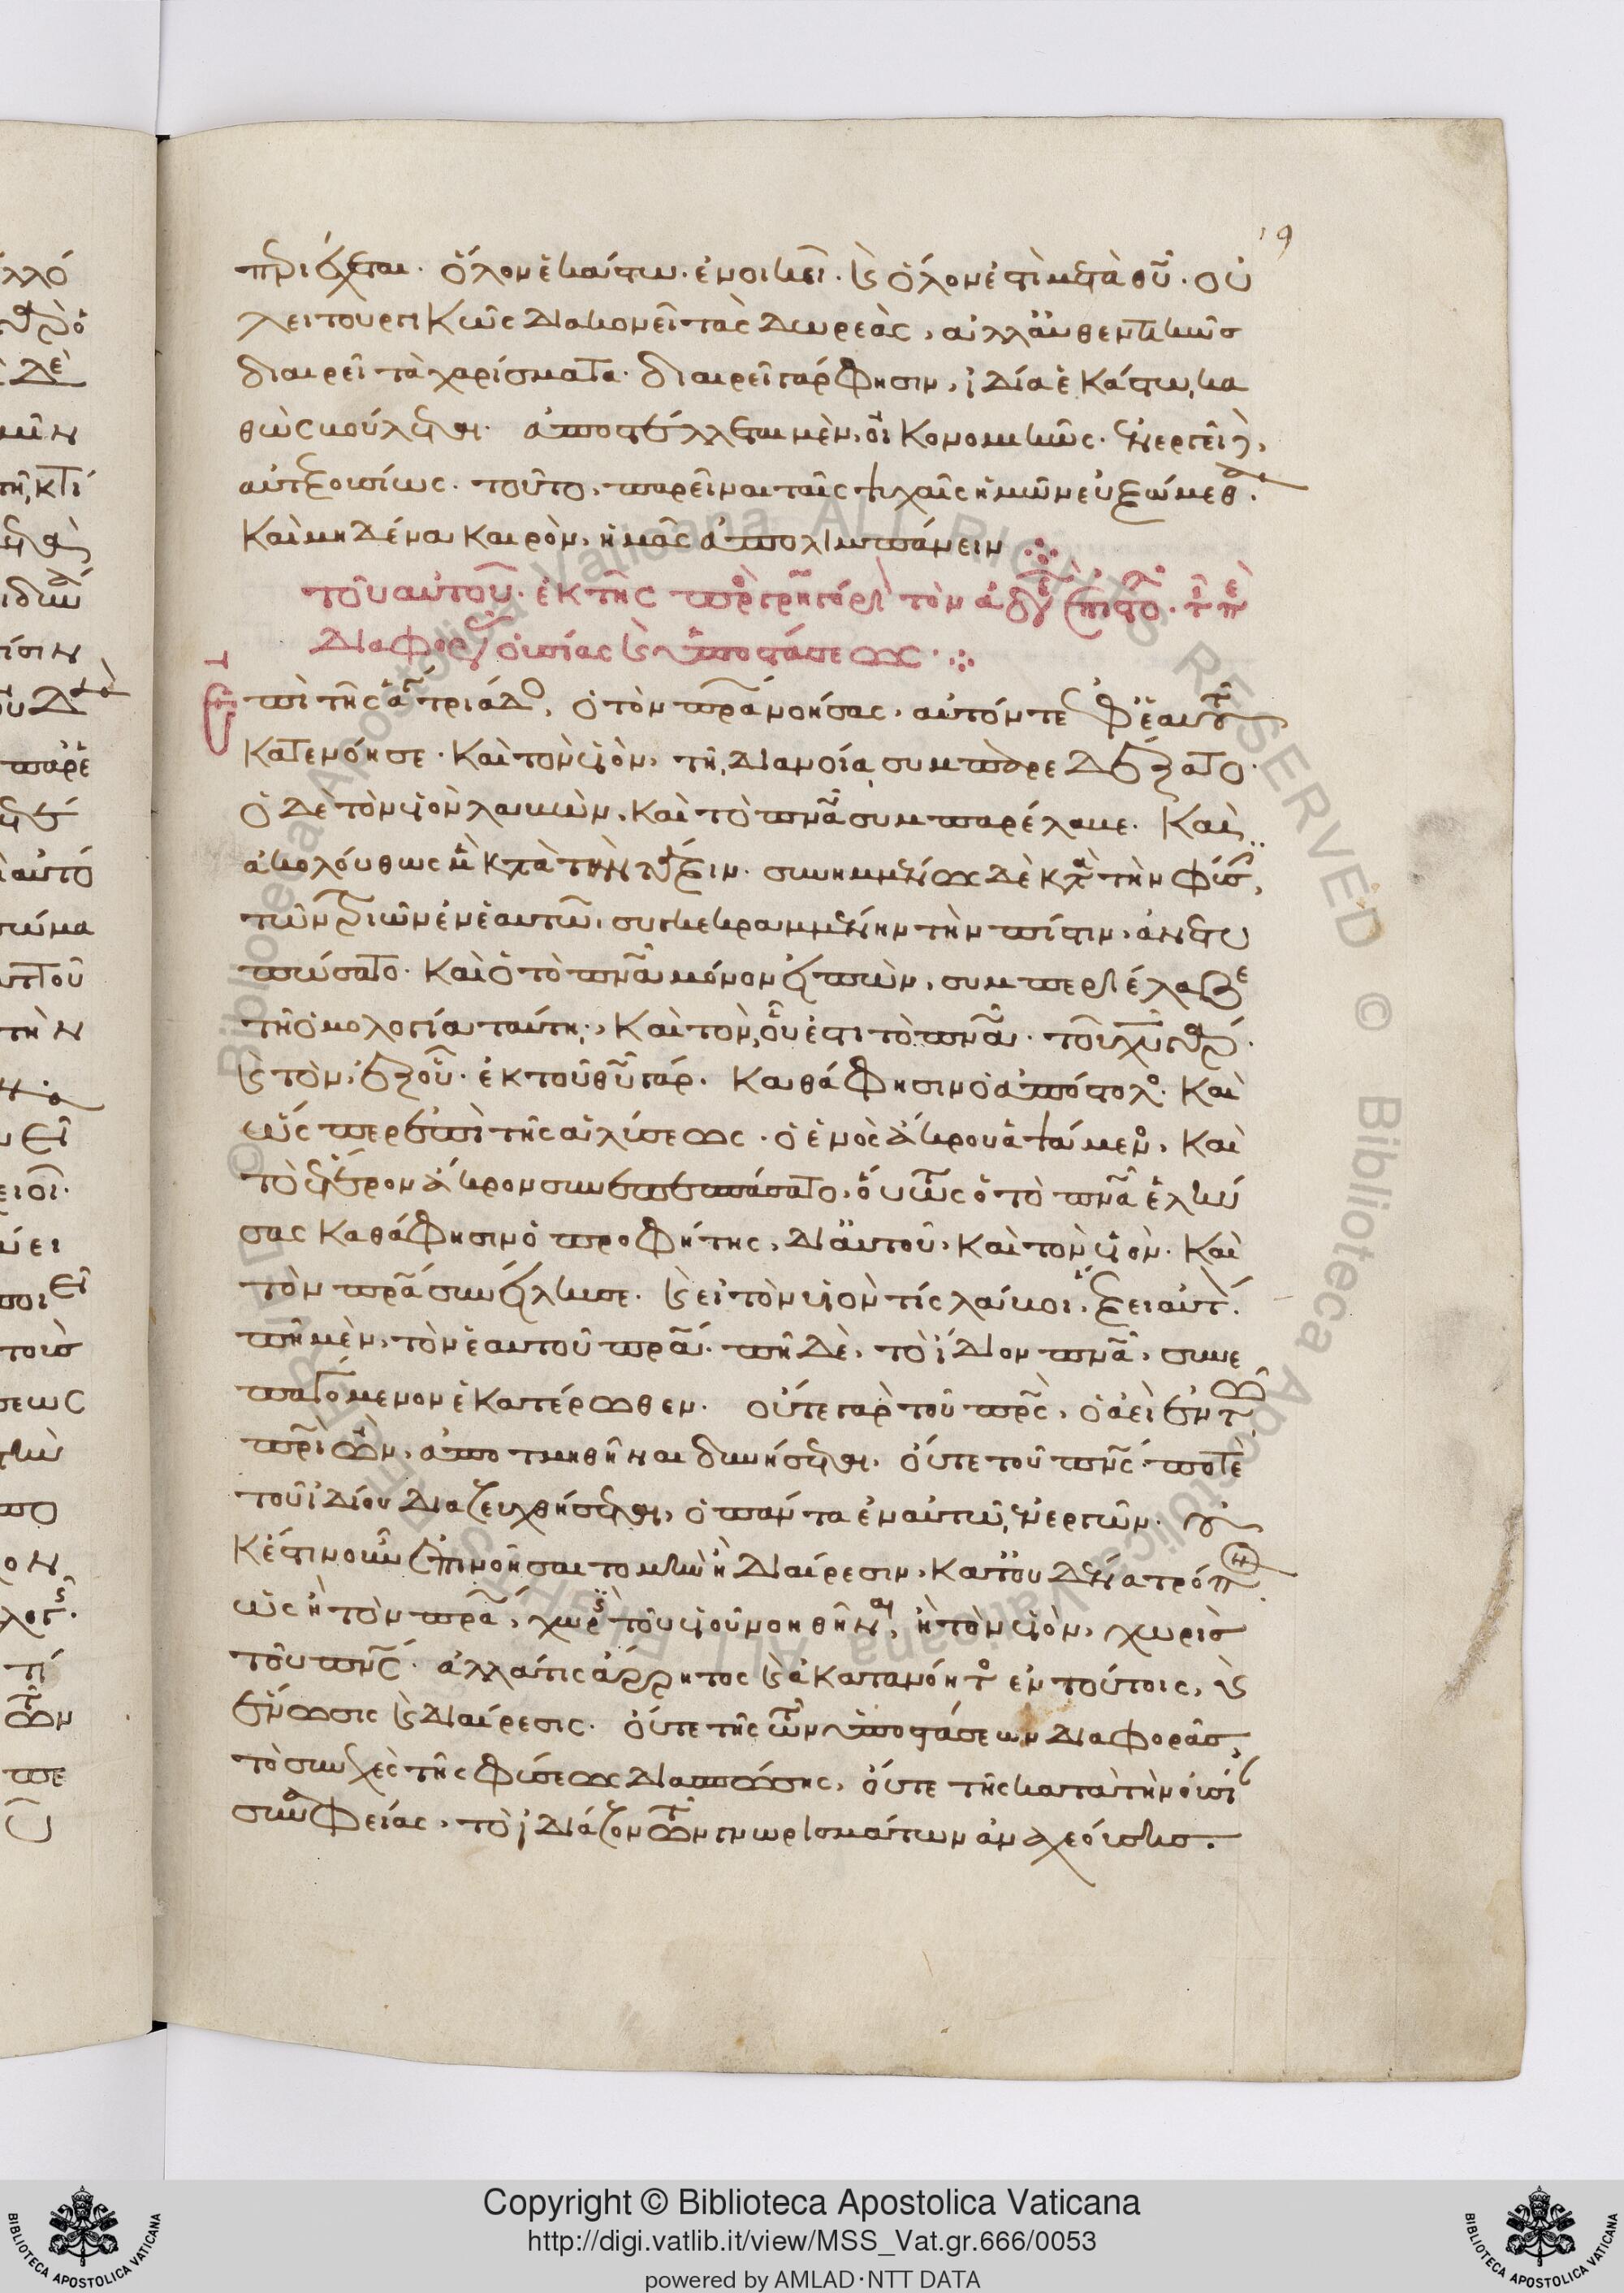 19
περιέχεται. ὅλον ἑκάστω. ἐνοικεῖ. καὶ ὅλον ἐστὶ μετὰ θῦ. οὐ
λειτουργικῶς διακονεῖ τὰς δωρεὰς, ἀλλ' αὐθεντικῶς
διαιρεῖ τὰ χαρίσματα. διαιρεῖ γάρ φησιν, ἰδία ἑκάστω, κα
θὼς βούλεται. ἀποστέλλεται μὲν, οἰκονομικῶς. ἐνεργεῖ δὲ,
αὐτεξουσίως. τοῦτο, παρεῖναι ταῖς ψυχαῖς ἡμῶν εὐξώμεθα.
Καὶ μηδένα καιρὸν, ἡμᾶς ἀπολιμπάνειν
τοῦ αὐτοῦ. ἐκ τῆς πρὸς γρηγόριον τὸν ἀδελφὸν ἐπιστολῆς. τῆς περὶ
διαφορᾶς οὐσίας καὶ ὑποστάσεως.
Ἐπὶ τῆς ἁγίας τριάδος, ὁ τὸν πρα νοήσας. αὐτόν τε ἐφ' ἑαυτοῦ
κατενόησε. Καὶ τὸν υἱὸν, τῆ διανοία συμπαρεδέξατο.
ὁ δὲ τὸν υἱὸν λαβὼν, καὶ τὸ πνα συμπαρέλαβε. Καὶ
ἀκολούθως μὲν κατὰ τὴν τάξιν. συνημμένως δὲ κατὰ τὴν φύσιν,
τῶν τριῶν ἐν ἑαυτῶ, συγκεκραμμένην τὴν πίστιν, ἀνετυ
πώσατο. Καὶ ὁ τὸ πνα μόνον εἰπὼν, συμπεριέλαβε
τῆ ὁμολογία ταύτη, καὶ τὸν, οὗ ἐστι τὸ πνα. τοῦ χυ γάρ.
καὶ τὸν, ἐξ οὗ. ἐκ τοῦ θῦ γάρ. Καθά φησιν ὁ ἀπόστολος. Καὶ
ὥσπερ ἐπὶ τῆς ἁλύσεως. ὁ ἑνὸς ἄκρου ἁψάμενος, καὶ
τὸ ἕτερον ἄκρον συνεπεσπάσατο, οὕτως ὁ τὸ πνα ἑλκύ
σας καθά φησιν ὁ προφήτης, δι' αὐτοῦ, καὶ τὸν υἱὸν. Καὶ
τὸν πρα συνείλκυσε. καὶ εἰ τὸν υἱὸν τίς λάβοι, ἕξει αὐτὸν.
πῆ μὲν, τὸν ἑαυτοῦ πρα. πῆ δὲ, τὸ ἴδιον πνα, συνε
παγόμενον ἑκατέρωθεν. οὔτε γὰρ τοῦ πρς, ὁ ἀεὶ ἐν τῶ
πρι ὢν, ἀποτμηθῆναι δυνήσεται. οὔτε τοῦ πνς ποτὲ
τοῦ ἰδίου διαζευχθήσεται, ὁ πάντα ἐν αὐτῶ, ἐνεργῶν. οὐ
κέστιν οὖν ἐπινοῆσαι τομὴν ἢ διαίρεσιν, κατ' οὐδένα τρόπον.
ὡς ἢ τὸν πρα, χωρὶς τοῦ υἱοῦ νοηθῆναι, ἢ τὸν υἱὸν, χωρὶς
τοῦ πνς. ἀλλά τις ἄρρητος καὶ ἀκατανόητος ἐν τούτοις, καὶ
ἕνωσις καὶ διαίρεσις. οὔτε τῆς τῶν ὑποστάσεων διαφορᾶς,
τὸ συνεχὲς τῆς φύσεως διασπώσης, οὔτε τῆς κατὰ τὴν οὐσίαν
συναφείας, τὸ ἰδιάζον τῶν γνωρισμάτων ἀναχεούσης.
Copyright © Biblioteca Apostolica Vaticana
http://digi.vatlib.it/view/MSS_Vat.gr.666/0053
powered by AMLAD·NTT DATA